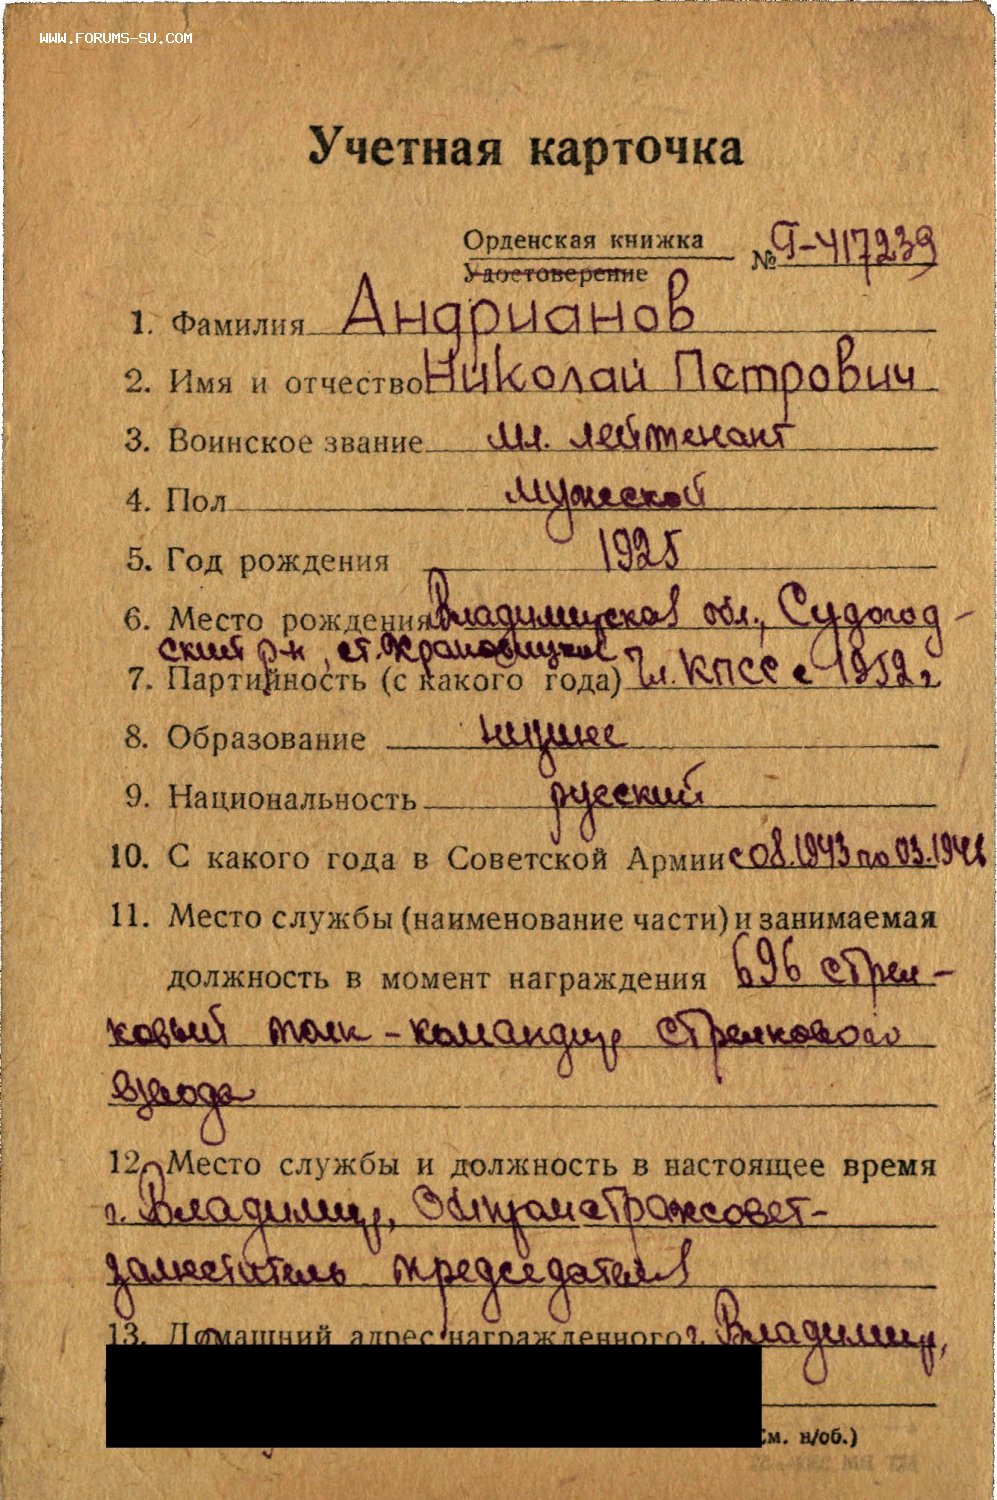 WWW.FORUMS-SU.COM
Учетная карточка
Орденская книжка
Удостоверение
№ Г-417239
1. Фамилия Андрианов
2. Имя и отчество Николай Петрович
3. Воинское звание мл. лейтенант
4. Пол мужской
5. Год рождения 1925
6. Место рождения Владимирская обл., Судогод-
ский р-н, ст.
7. Партийность (с какого года) Чл. КПСС с 1952 г
8. Образование низшее
9. Национальность русский
10. С какого года в Советской Армии с 08.1943 по 03.1948
11. Место службы (наименование части) и занимаемая
должность в момент награждения 696 стрел-
ковый полк - командир стрелкового
взвода
12. Место службы и должность в настоящее время
г. Владимир, Облпромстрахсовет-
заместитель председателя
13. Домашний адрес награжденного г. Владимир,
(См. н/об.)